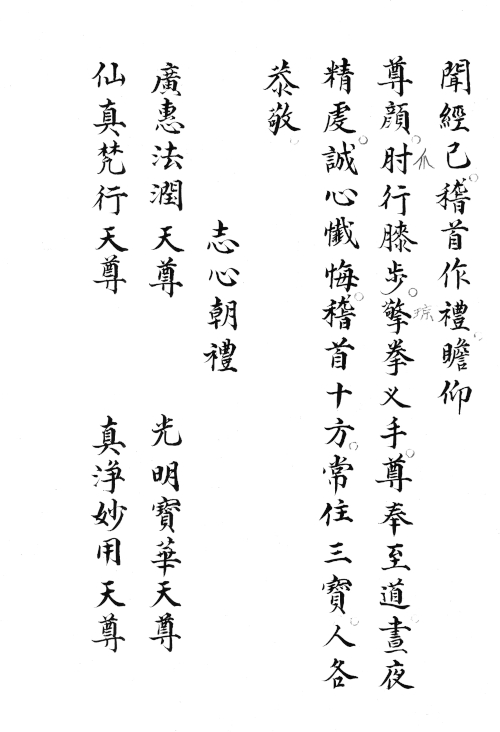 聞經已稽首作禮瞻仰
尊顔肘行膝步擎拳义手尊奉至道晝夜
精虔誠心懺悔稽首十方常住三寶人各
恭敬
志心朝禮
廣惠法潤天尊 光明寶華天尊
仙真梵行天尊 真淨妙用天尊